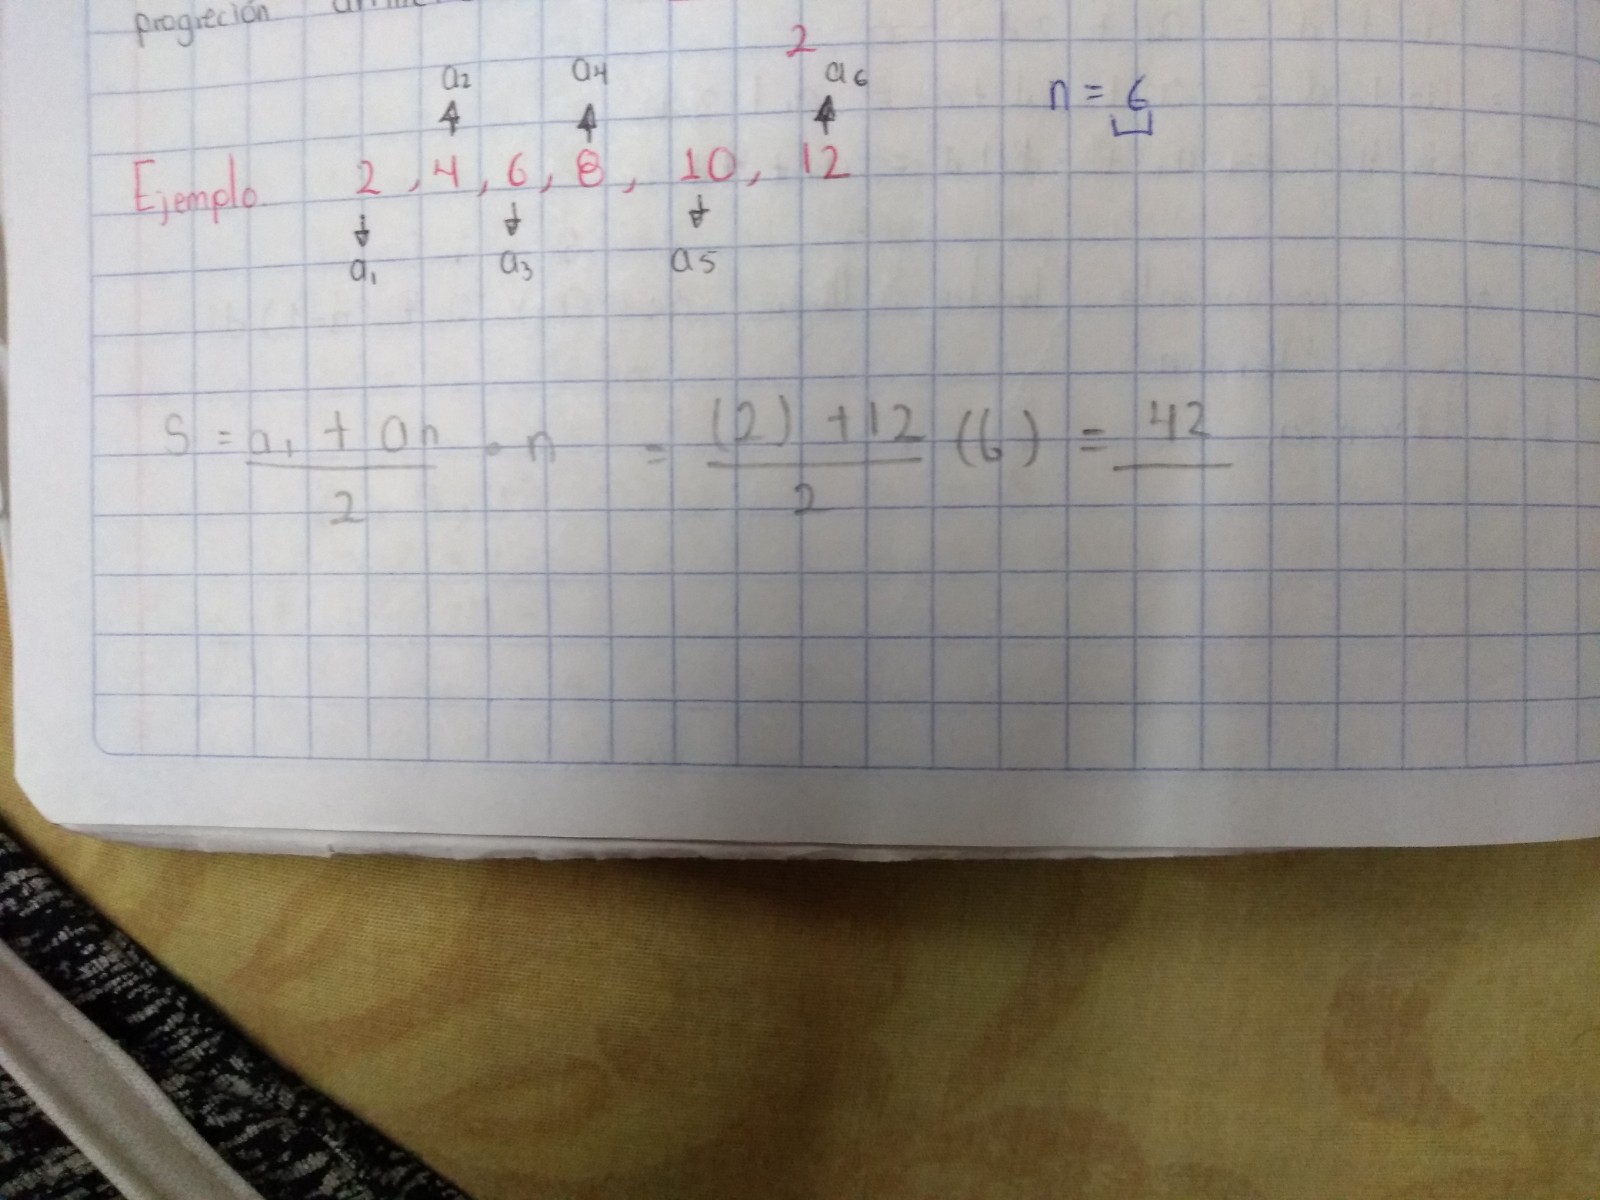 progreción
2
a2 a4 a6 n = 6
Ejemplo 2 , 4 , 6 , 8 , 10 , 12
a1 a3 a5
S = a1 + an / 2 · n = (2) + 12 / 2 (6) = 42